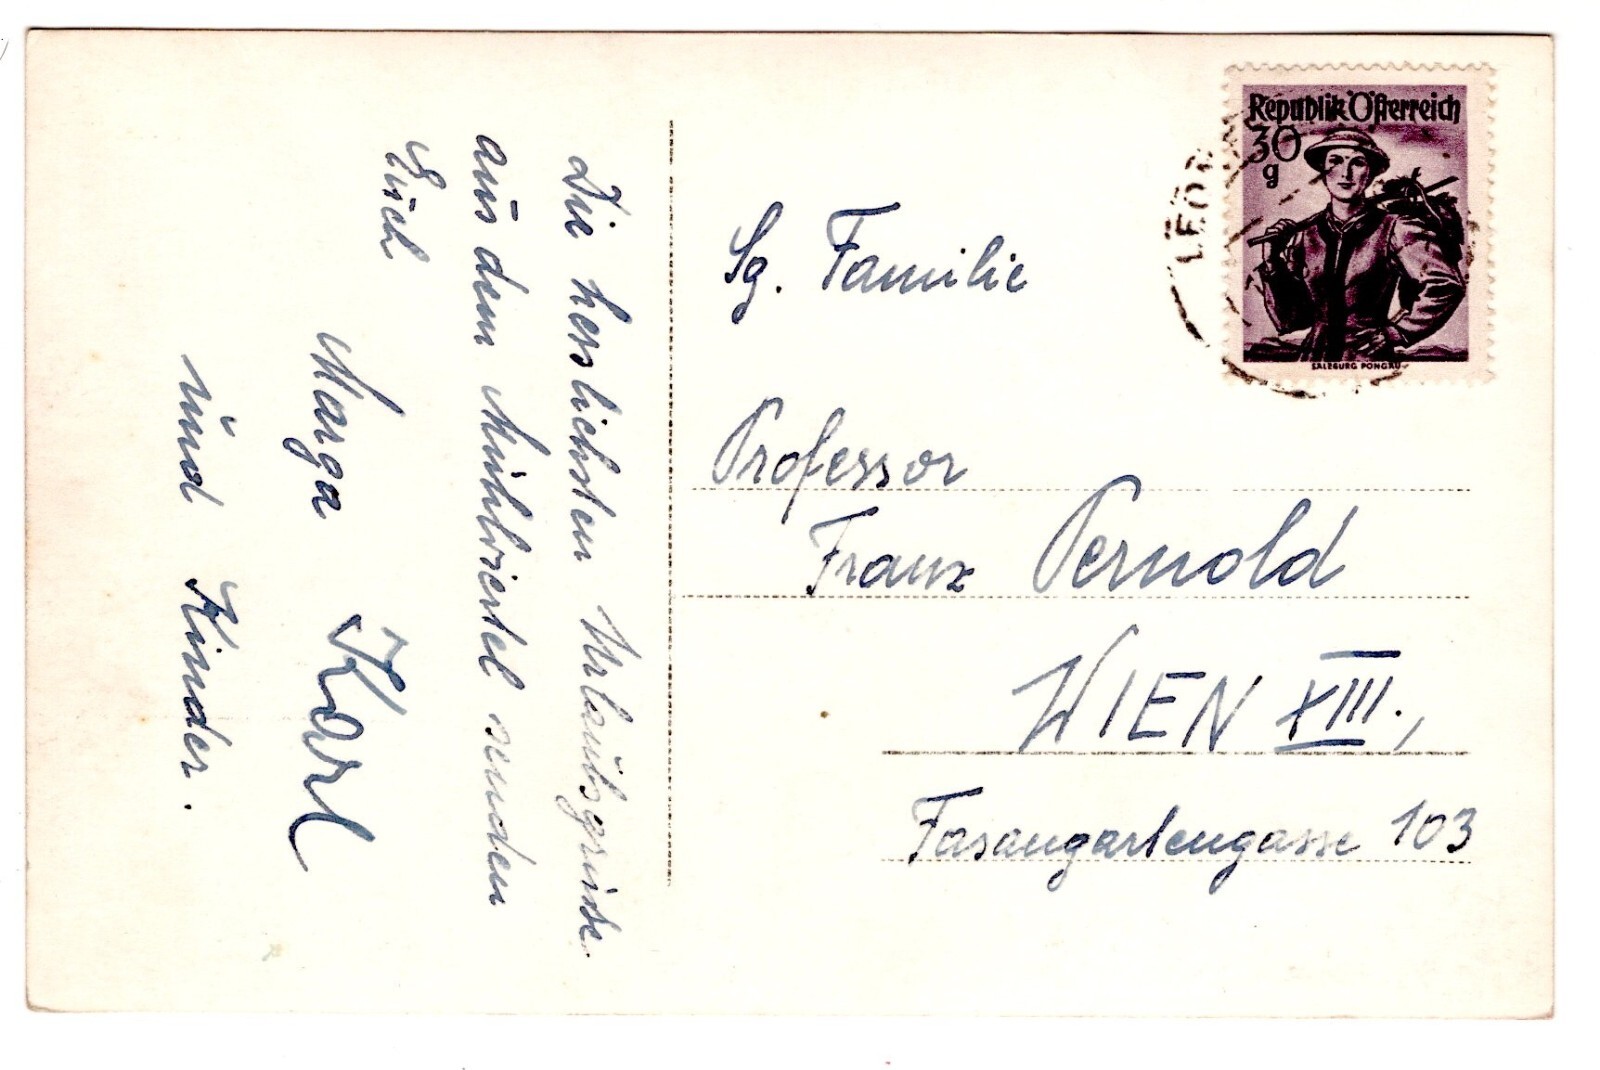 Die herzlichsten Urlaubsgrüße
aus dem Mühlviertel senden
Euch
Marga Karl
und Kinder.
Sg. Familie
Professor
Franz Pernold
WIEN XIII.,
Fasangartengasse 103
Republik Österreich
30
g
SALZBURG PONGAU